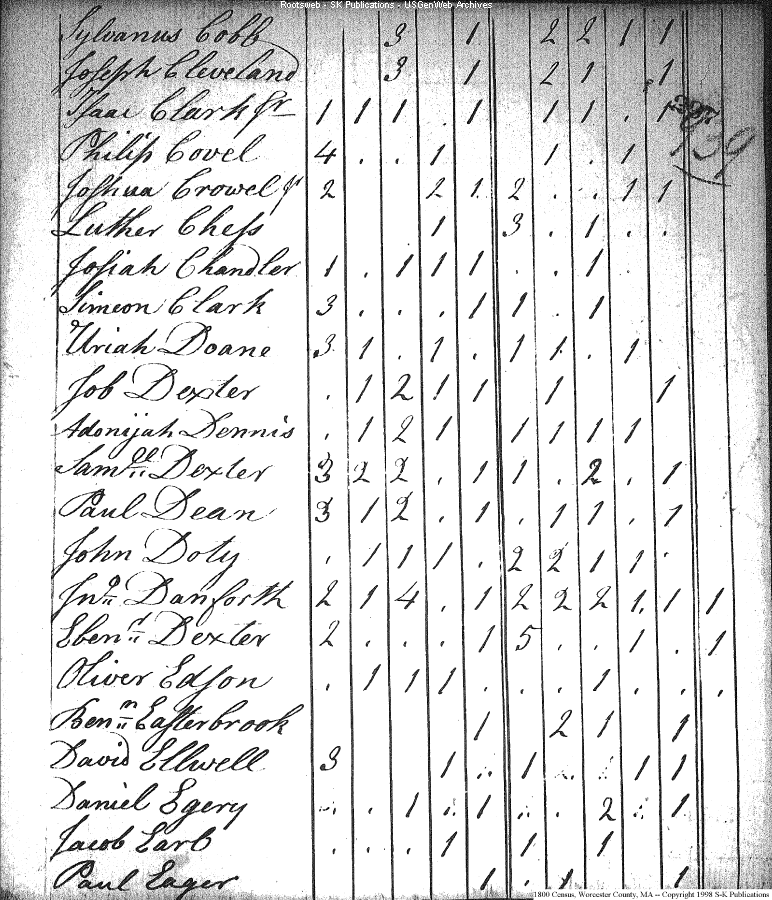 Rootsweb - SK Publications - USGenWeb Archives
Sylvanus Cobb 3 1 2 2 1 1
Joseph Cleveland 3 1 2 1 . 1
Isaac Clark Jr 1 1 1 . 1 1 1 . 1
939
Philip Covel 4 . . 1 1 . 1
Joshua Crowel Jr 2 2 1 2 . . 1 1
Luther Chess 1 3 . 1 . .
Josiah Chandler 1 . 1 1 1 . . 1
Simeon Clark 3 . . . 1 1 . 1
Uriah Doane 3 1 . 1 . 1 1 . 1
Job Dexter . 1 2 1 1 1 1
Adonijah Dennis . 1 2 1 1 1 1 1
Samll Dexter 3 2 2 . 1 1 . 2 . 1
Paul Dean 3 1 2 . 1 . 1 1 . 1
John Doty . 1 1 1 . 2 2 1 1 .
Jno Danforth 2 1 4 . 1 2 2 2 1 1 1
Ebenr Dexter 2 . . . 1 5 . . 1 . 1
Oliver Edson . 1 1 1 . . . 1 . . .
Benn Easterbrook 1 2 1 1
David Ellwell 3 1 .. 1 .. .. 1 1
Daniel Egery .. . 1 .. 1 .. . 2 .. 1
Jacob Earl . . . 1 1 1
Paul Eager 1 . 1 1
1800 Census, Worcester County, MA -- Copyright 1998 S-K Publications